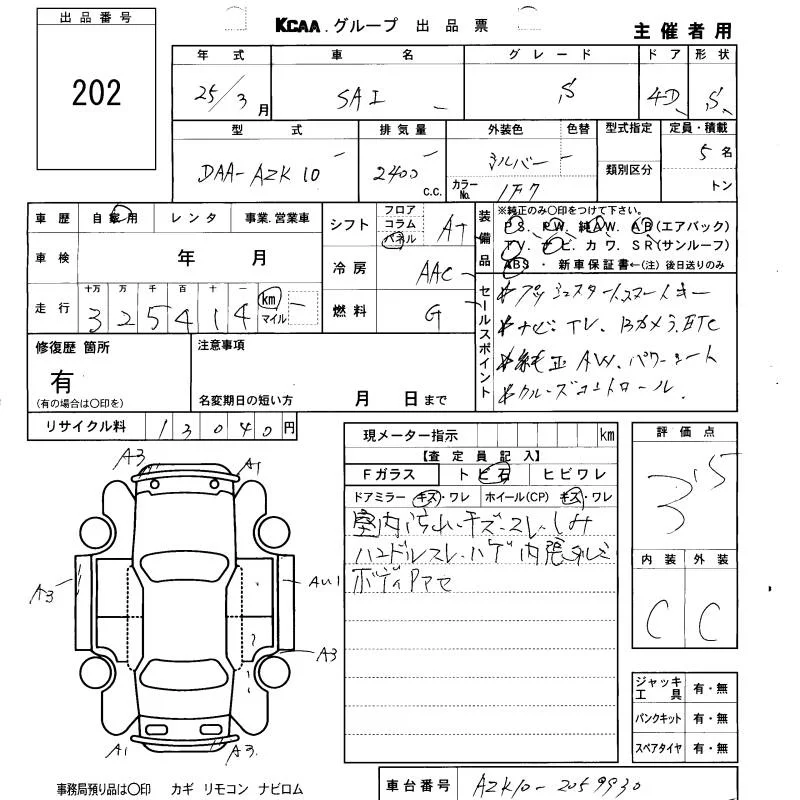 出品番号
202
KCAA.グループ 出品票
主催者用
年式 車名 グレード ドア 形状
25/3月 SAI S 4D S
型式 排気量 外装色 色替 型式指定 定員・積載
DAA-AZK10 2400 c.c. シルバー 類別区分 5名
カラーNo. 1F7 トン
車歴 自家用 レンタ 事業.営業車
車検 年 月
走行 十万 万 千 百 十 一
3 2 5 4 1 4 km マイル
シフト フロア コラム パネル AT
冷房 AAC
燃料 G
装備品
※純正のみ○印をつけて下さい。
PS. PW. 純AW. AB(エアバック)
TV. ナビ. カワ. SR(サンルーフ)
ABS ・ 新車保証書←(注)後日送りのみ
セールスポイント
*プッシュスタート.スマートキー
*ナビ.TV.Bカメラ.ETC
*純正AW.パワーシート
*クルーズコントロール.
修復歴 箇所
有
(有の場合は○印を)
注意事項
名変期日の短い方 月 日まで
リサイクル料 13040円
現メーター指示 km
【査定員記入】
Fガラス トビ石 ヒビワレ
ドアミラー キズ・ワレ ホイール(CP) キズ・ワレ
室内汚れ.キズ.スレ.しみ
ハンドルスレ.ハゲ 内張タルミ
ボディPアセ
評価点
3.5
内装 外装
C C
A3 A1
A3
AU1
A3
A1 A3
ジャッキ工具 有・無
パンクキット 有・無
スペアタイヤ 有・無
事務局預り品は○印 カギ リモコン ナビロム
車台番号 AZK10-2059930